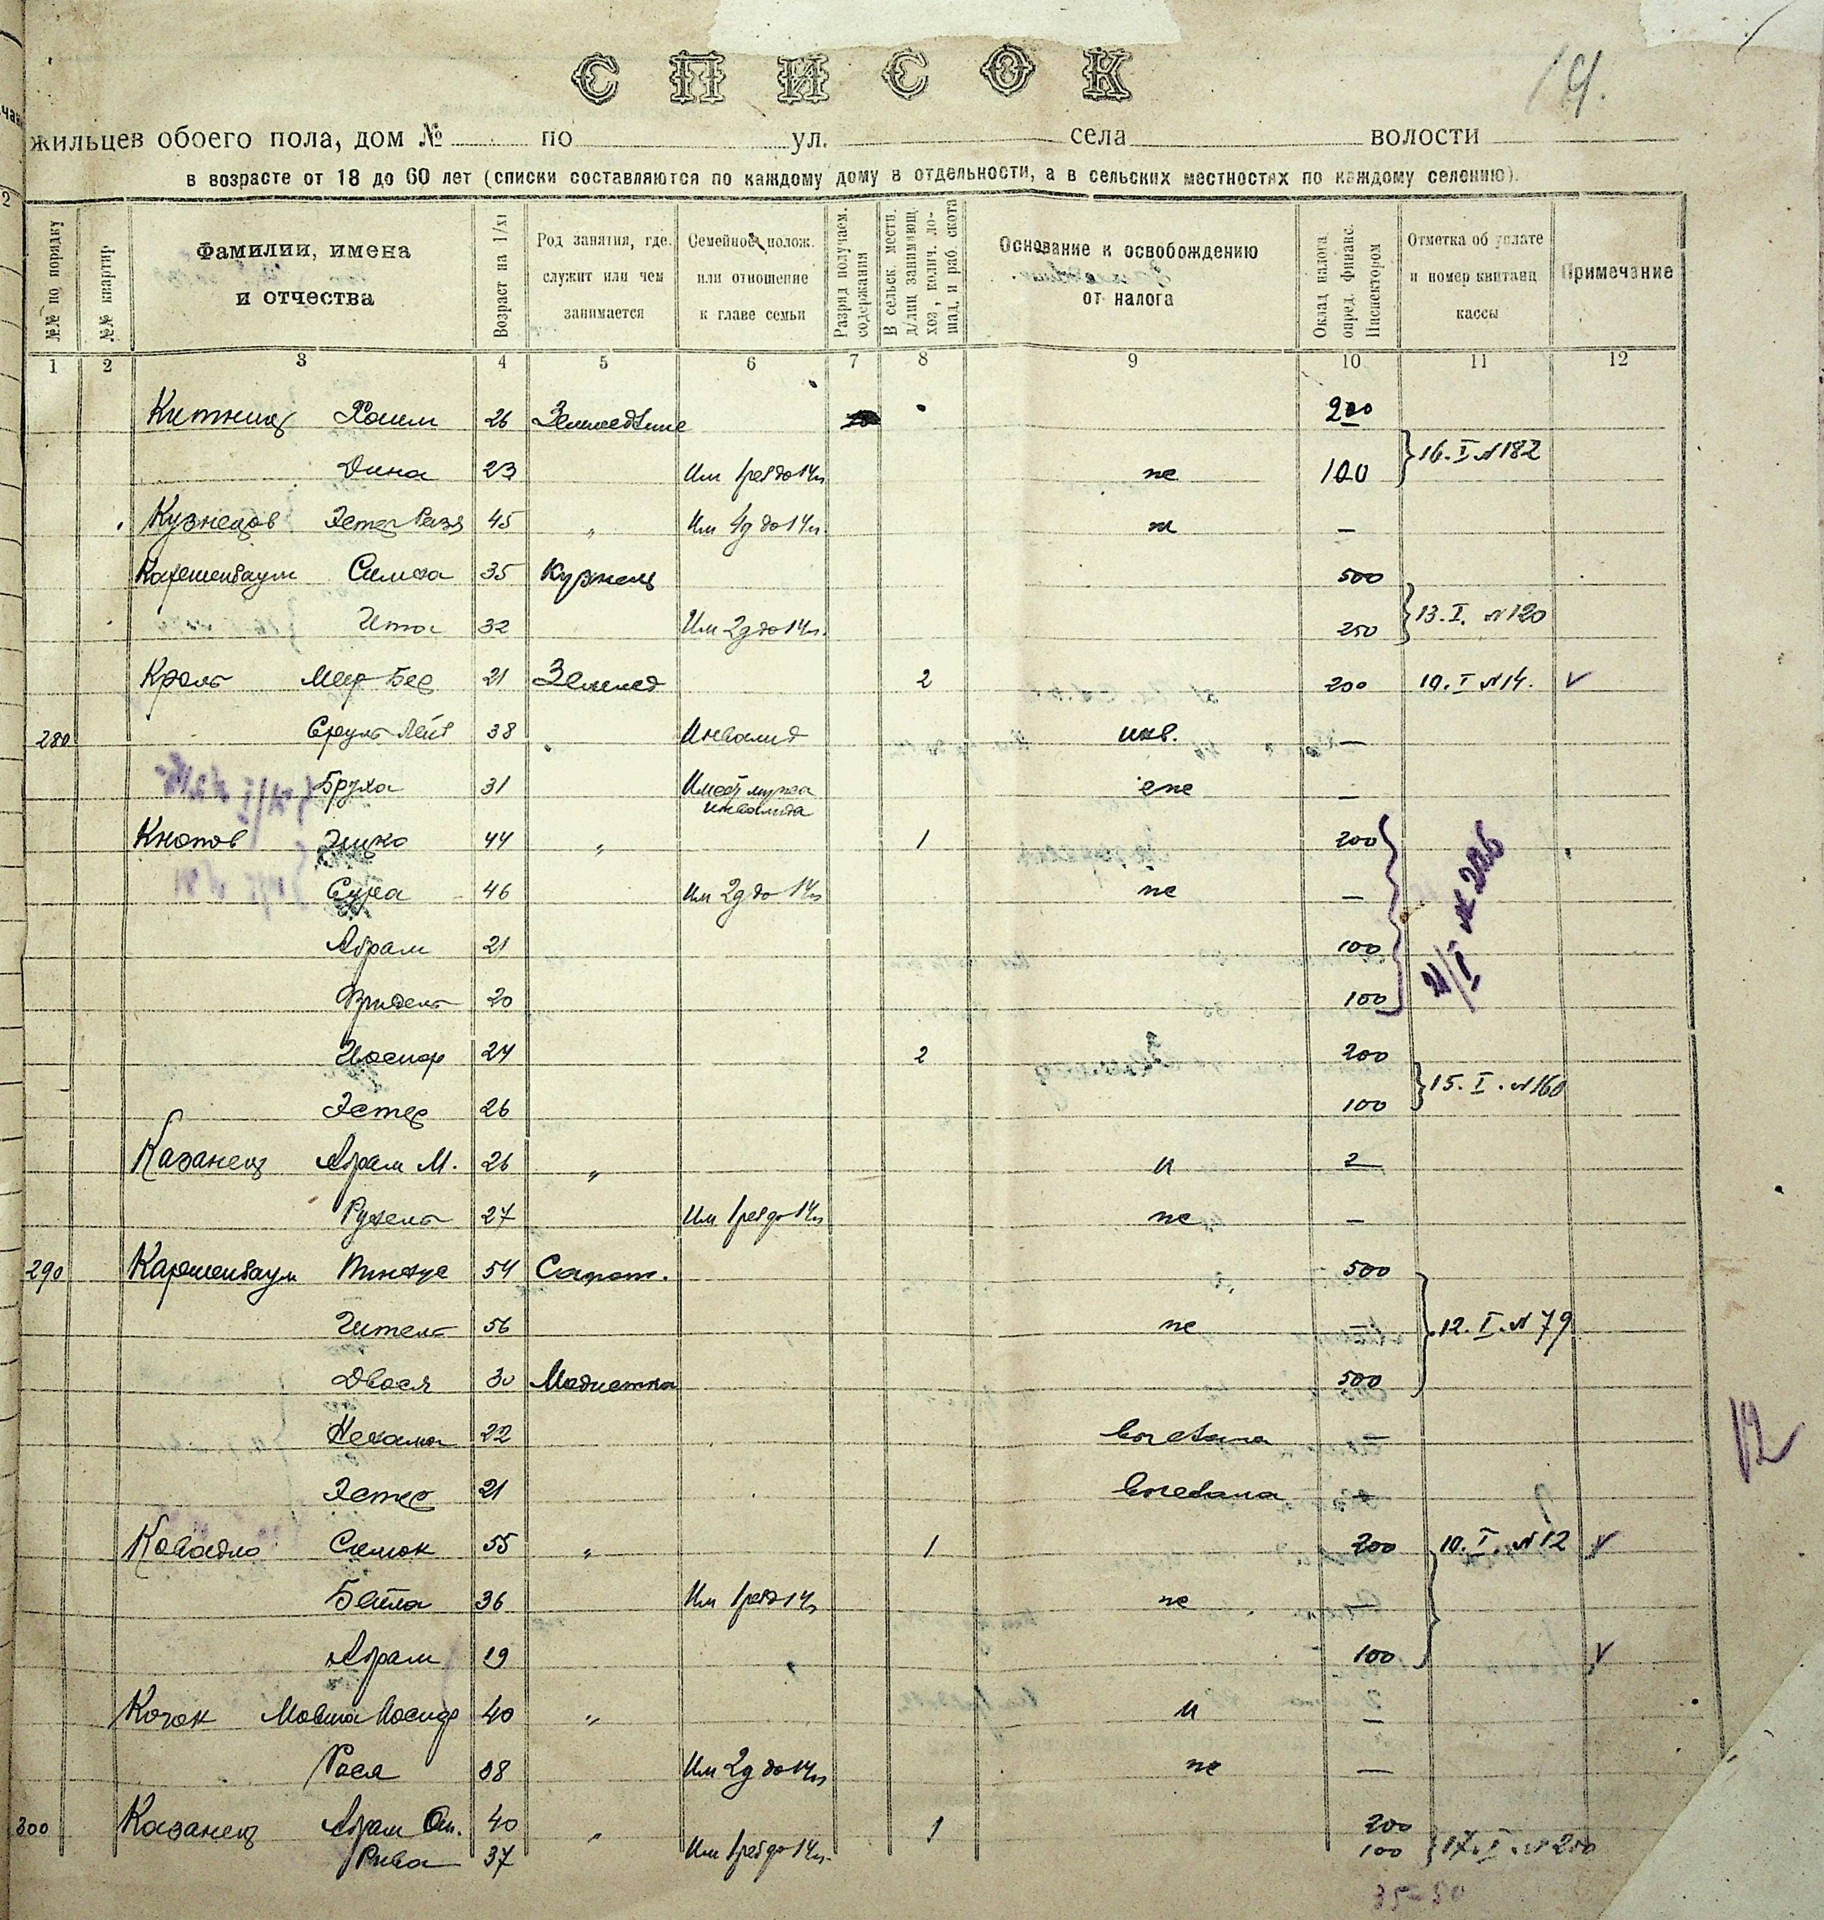 19.
СПИСОК
жильцев обоего пола, дом № по ул. села волости
в возрасте от 18 до 60 лет (списки составляются по каждому дому в отдельности, а в сельских местностях по каждому селению).
№№ по порядку
№№ квартир
Фамилии, имена и отчества
Возраст на 1/XI
Род занятия, где служит или чем занимается
Семейное полож. или отношение к главе семьи
Разряд получаем. содержания
В сельск. местн. д/лиц занимающ. хоз., колич. лошад. и раб. скота
Основание к освобождению от налога
Оклад налога опред. финанс. Инспектором
Отметка об уплате и номер квитанц кассы
Примечание
1 2 3 4 5 6 7 8 9 10 11 12
Китниц Хаим 26 Земледелие 200
Дина 23 Им 1 реб до 14л не 100 } 16. I № 182
Кузнецов Эстер Рейзя 45 " Им 4д до 14л. —
Симха 35 Кузнец 500
Ита 32 Им 2д до 14л. 250 } 13. I. № 120
Кроль Меер Бер 21 Землед 2 200 10. I № 14. V
280 Сруль Лейб 38 Инвалид инв. —
Бруха 31 Имеет мужа инвалида —
Кнопов Ицко 44 " 1 200
Сура 46 Им 2д до 14л не —
Абрам 21 100
Фридель 20 100 } 21/I № 206
Иосиф 24 2 200
Эстер 26 100 } 15. I. № 160
Казанец Абрам М. 26 " и
Рухель 27 Им 1 реб до 14л не —
290 Каршенбаум Пинхус 54 Сапож. 500
Гитель 56 не } 12. I. № 79
Двося 30 Модистка 500
Нехама 22 —
Эстер 21 —
Ковадло Симон 55 " 1 200 10. I. № 12 V
Бейла 36 Им 1 реб 14л не —
Абрам 19 100 V
Коган Мовша Иосиф 40 " и —
Рася 38 Им 2д до 14л не —
300 Казанец Абрам 40 " 1 200
Рива 37 Им 1 реб до 14л. 100 } 17. I. № 200
35-50
12